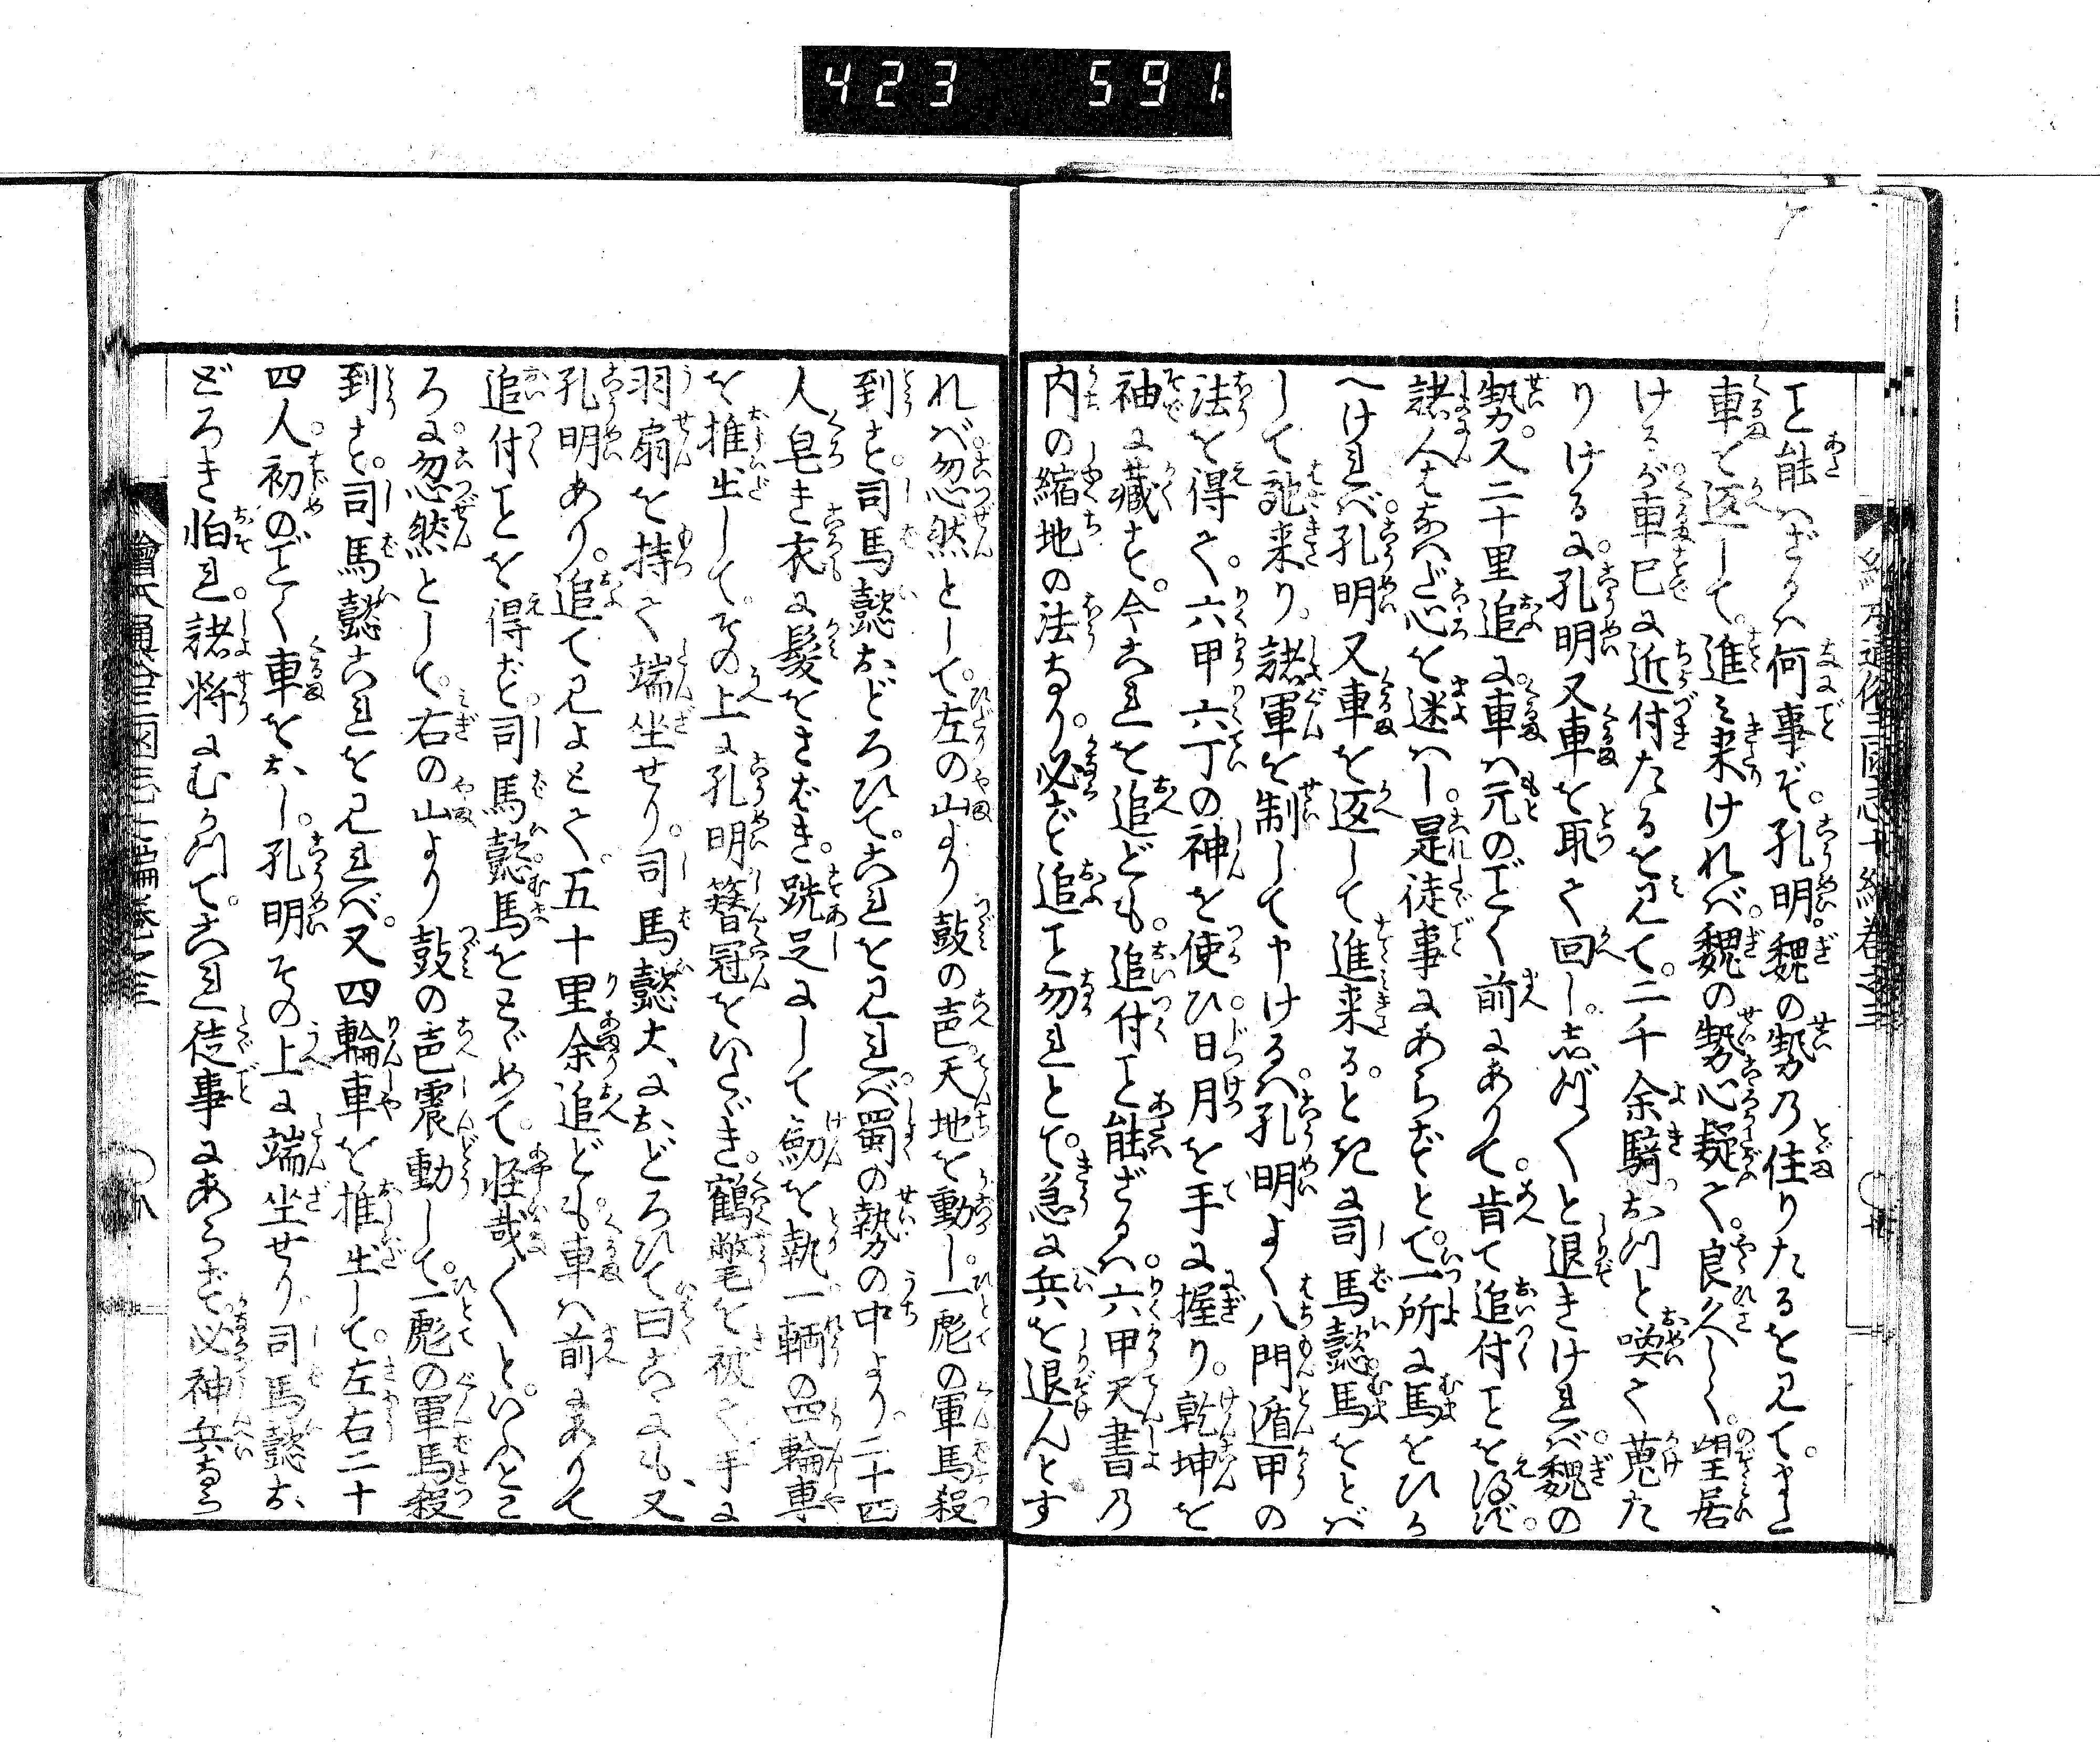 423 591.
こと能ハざるハ何事ぞ。孔明。魏の勢乃住りたるを見て。また
車を返して。進ミ来けれバ。魏の勢心疑て。良久しく。望居
けるが。車已に近付たるを見て。二千余騎おつと喚て蒐た
りける に。孔明又車を取て回し。志づ〱と退きけれバ。魏の
勢。又二十里追に。車ハ元のごとく前にありて。肯て追付ことを得ず。
諸人ミなへど心を迷ハし。是徒事にあらずとて。一所に馬をひか
へけれバ。孔明又車を返して進来る。と死に司馬懿。馬をとバ
して馳来り。諸軍を制して申けるハ。孔明よく八門遁甲の
法を得て。六甲六丁の神を使ひ。日月を手に握り。乾坤を
袖に蔵す。今これを追ども。追付こと能ざるハ。六甲天書乃
内の縮地の法なり。必ず追こと勿れとて。急に兵を退んとす
れバ。忽然として。左の山より鼓の声。天地を動し。一彪の軍馬殺
到す。司馬懿おどろひて。これを見れバ。蜀の勢の中より。二十四
人皂き衣に髪をさばき。跣足にして劔を執。一輌の四輪車
を推出して。その上に孔明簪冠をいたゞき。鶴氅を被て手に
羽扇を持て端坐せり。司馬懿大におどろひて曰。こゝにも又
孔明あり。追て見よとて。五十里余追ども。車ハ前にありて
追付ことを得ず。司馬懿。馬をとゞめて。怪哉〱と。いふとこ
ろに。忽然として。右の山より鼓の声震動して。一彪の軍馬殺
到す。司馬懿これを見れバ。又四輪車を推出して。左右二十
四人。初のごとく車をおし。孔明その上に端坐せり。司馬懿お
どろき怕れ。諸将にむかつて。これ徒事にあらず。必神兵なら